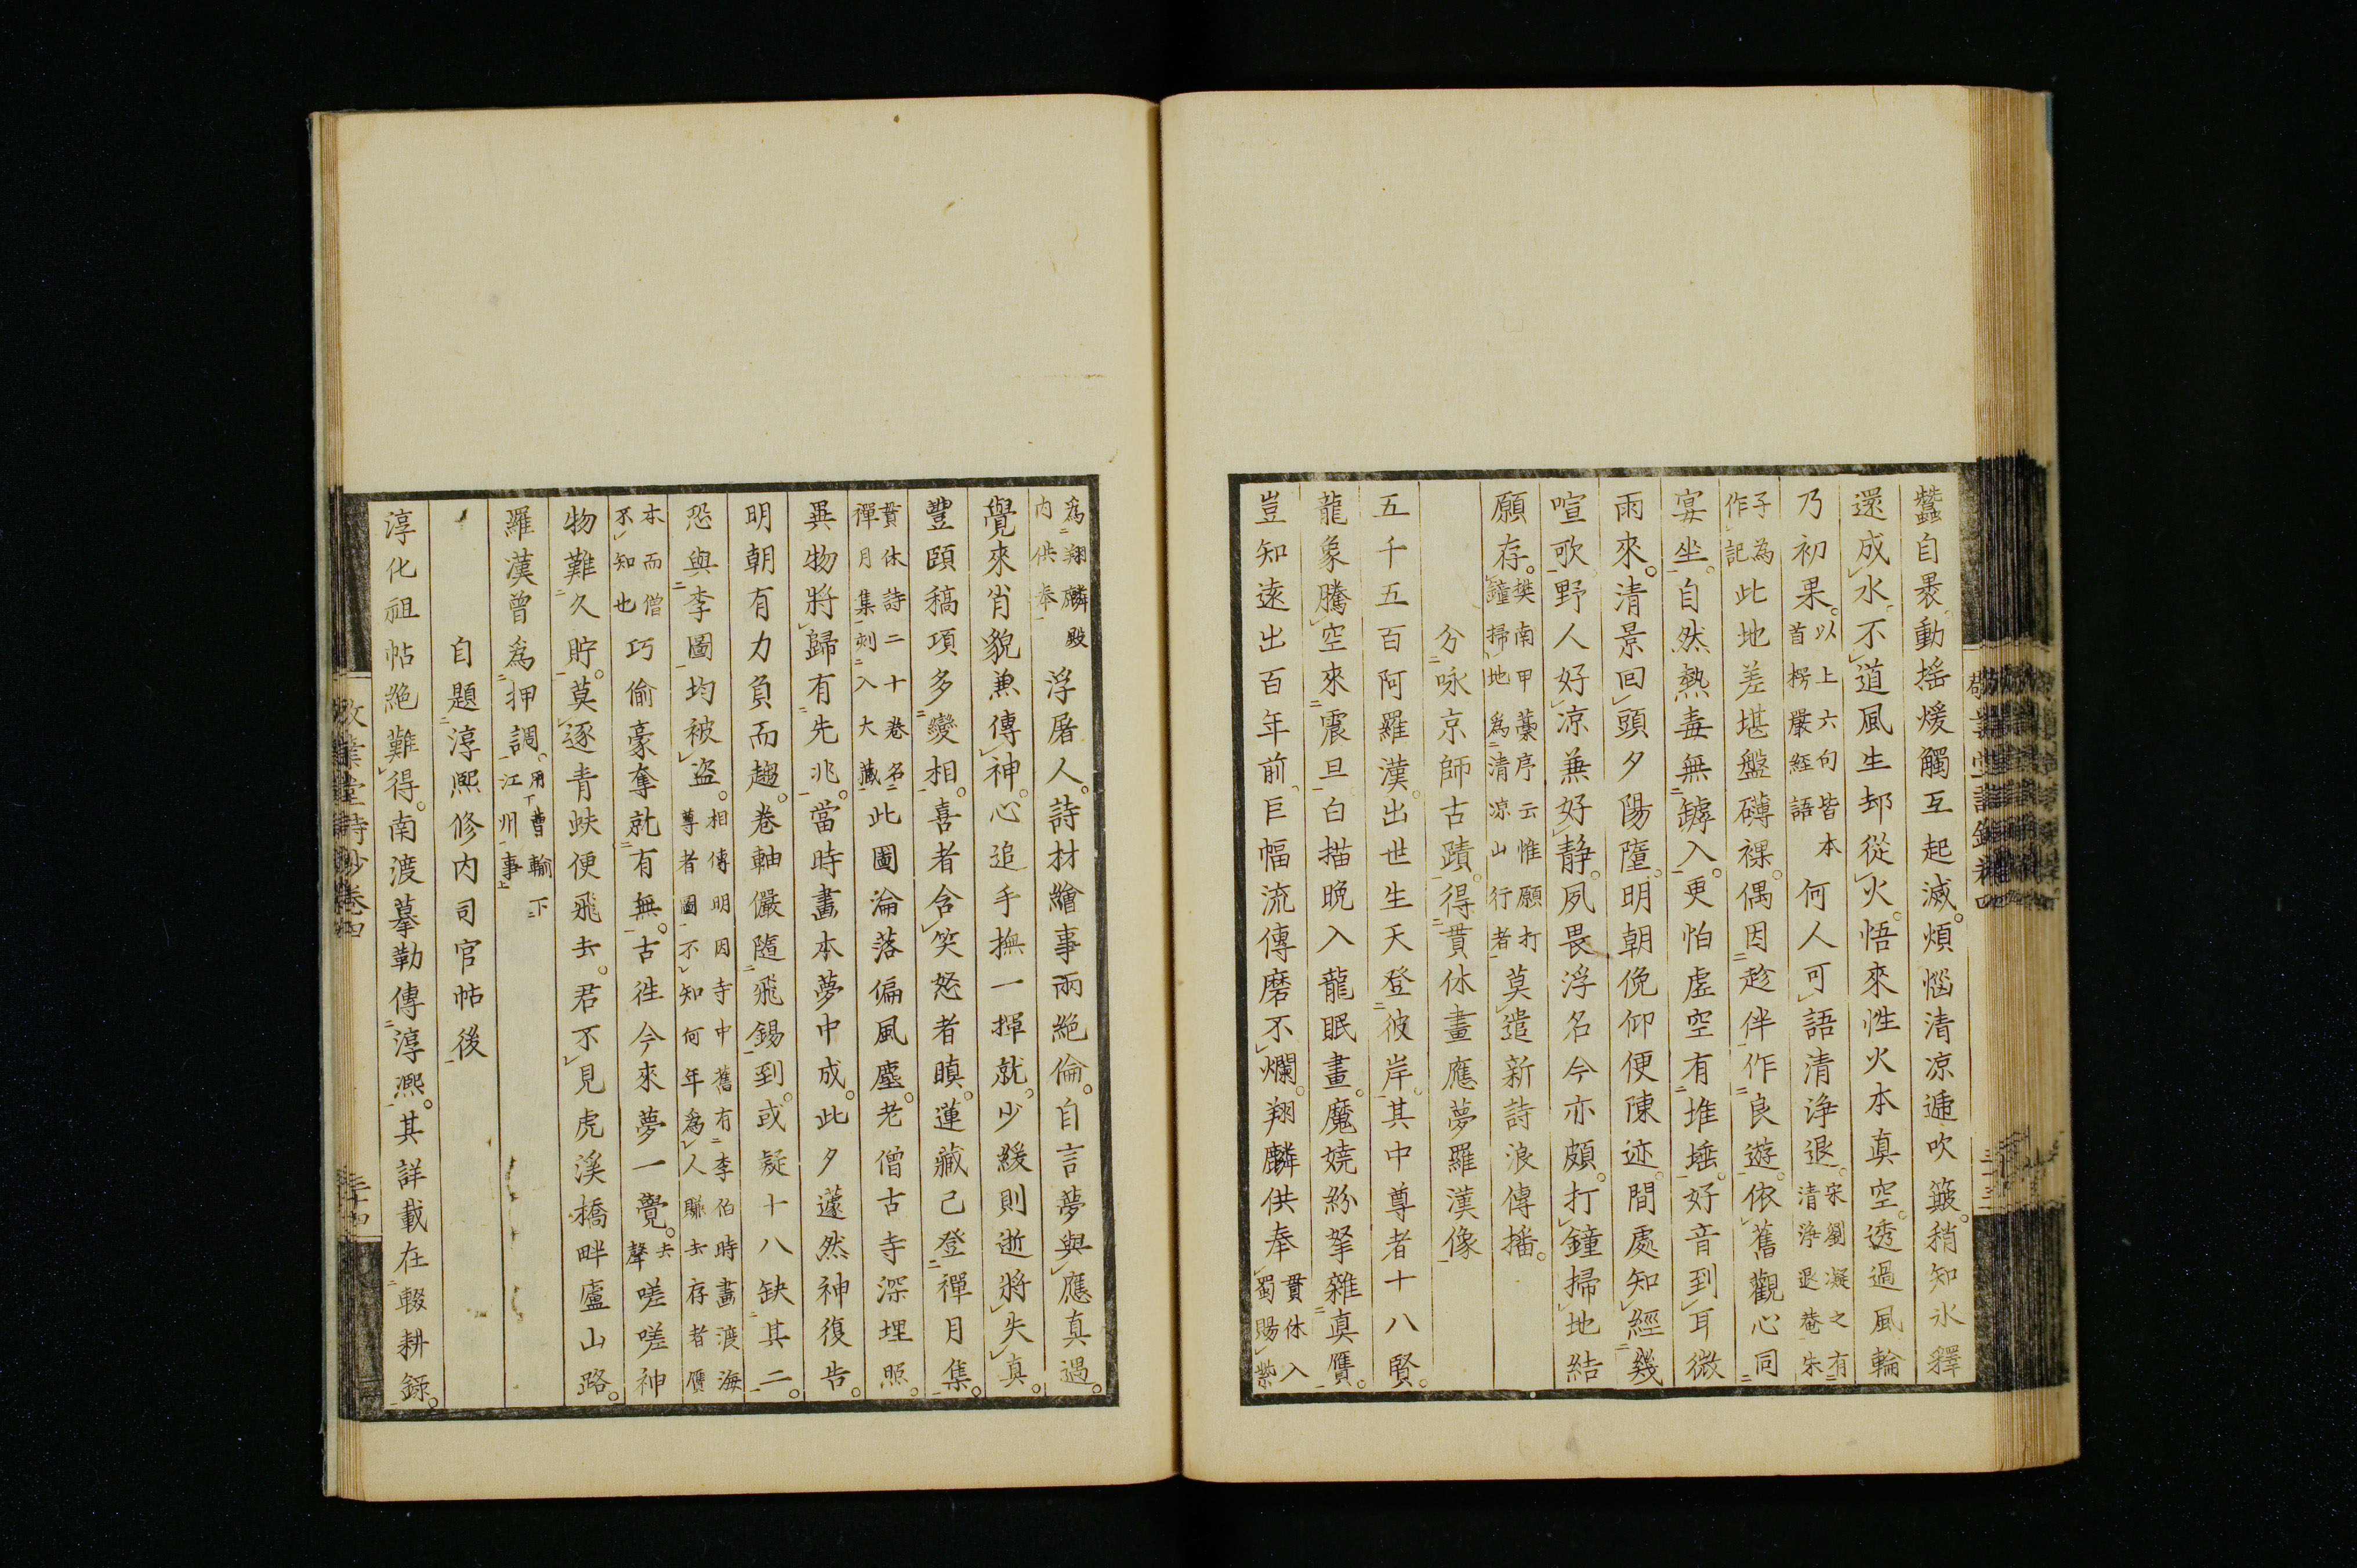 蠶自褁動揺煖觸互起滅。煩惱清凉遞吹簸。稍知氷釋
還成水不道風生却從火。悟來性火本真空。透過風輪
乃初果。以上六句皆本首楞嚴經語何人可語清浄退。宋劉凝之有清浄退菴朱
子為作記此地差堪盤礴裸。偶因趁伴作良遊。依舊觀心同
宴坐。自然熱毒無罅入。更怕虚空有堆埵。好音到耳微
雨來。清景回頭夕陽墮。明朝俛仰便陳迹。間處知經幾
喧歌野人好凉兼好静。夙畏浮名今亦頗。打鐘掃地結
願存。樊南甲藁序云惟願打鐘掃地為清凉山行者莫遣新詩浪傳播。
分咏京師古蹟。得貫休畫應夢羅漢像
五千五百阿羅漢。出世生天登彼岸。其中尊者十八賢。
龍象騰空來震旦。白描晩入龍眠畫。魔嬈紛拏雜真贋。
豈知遠出百年前、巨幅流傳磨不爛。翔麟供奉貫休入蜀賜紫
爲翔麟殿内供奉浮屠人。詩材繪事兩絶倫。自言夢與應真過。
覺來肖貌兼傳神。心追手撫一揮就。少緩則逝將失真。
豐頤稿項多變相。喜者含笑怒者瞋。蓮藏己登禪月集。
貫休詩二十巻名禪月集刻入大藏此圖淪落偏風塵。老僧古寺深埋照。
畀物將歸有先兆。當時畵本夢中成。此夕蘧然神復告。
明朝有力負而趨。巻軸儼隨飛錫到。或疑十八缺其二。
恐與李圖均被盗。相傳明因寺中舊有李伯時畫渡海尊者圖不知何年為人賺去存者贋
本而僧不知也巧偷豪奪就有無。古徃今來夢一覺。去聲嗟嗟神
物難久貯。莫逐青蚨便飛去。君不見虎溪橋畔廬山路。
羅漢曾爲押調。用曹翰下江州事
自題淳熙修内司官帖後
淳化祖帖絶難得。南渡摹勒傳淳熙。其詳載在輟耕録。
敬業堂詩鈔巻四
三十四